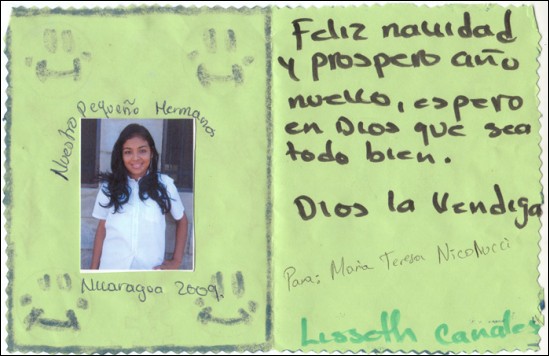 Nuestro Pequeños Hermanos
Nicaragua 2009.
Feliz navidad
y prospero año
nuevo, espero
en Dios que sea
todo bien.
Dios la Vendiga
Para: Maria Teresa Nicolucci
Lisseth Canales